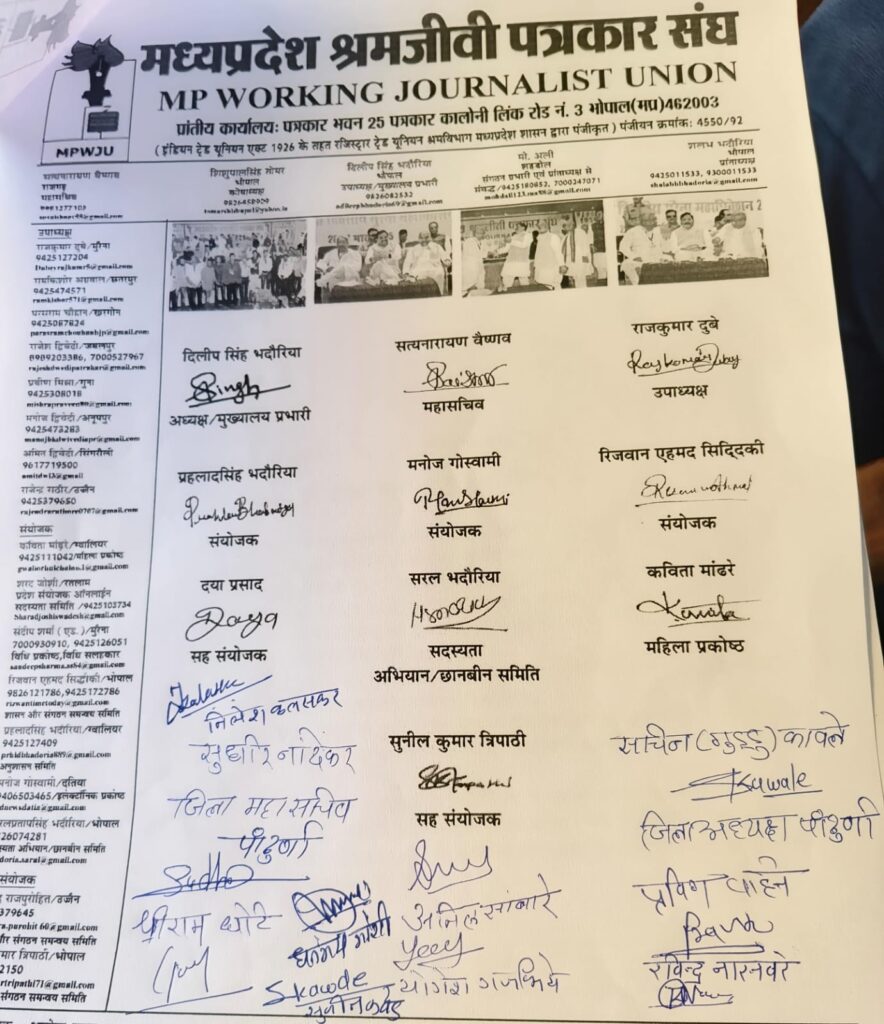 मध्यप्रदेश श्रमजीवी पत्रकार संघ
MP WORKING JOURNALIST UNION
प्रांतीय कार्यालयः पत्रकार भवन 25 पत्रकार कालोनी लिंक रोड नं. 3 भोपाल(मप्र)462003
( इंडियन ट्रेड यूनियन एक्ट 1926 के तहत रजिस्टार ट्रेड यूनियन श्रमविभाग मध्यप्रदेश शासन द्वारा पंजीकृत ) पंजीयन क्रमांक: 4550/92
MPWJU
सत्यनारायण वैष्णव
राजगढ़
महासचिव
शिशुपालसिंह तोमर
भोपाल
कोषाध्यक्ष
9826458909
दिलीप सिंह भदौरिया
भोपाल
उपाध्यक्ष/मुख्यालय प्रभारी
9826082532
मो. अली
संगठन प्रभारी एवं प्रांताध्यक्ष से
संबद्ध /9425180852, 7000247071
शलभ भदौरिया
भोपाल
प्रांताध्यक्ष
9425011533, 9300011533
shalabhbhadoria@gmail.com
उपाध्यक्ष
राजकुमार दुबे/मुरैना
9425127204
रामकिशोर अग्रवाल/छतरपुर
9425474571
ramkishor571@gmail.com
परसराम चौहान/खरगौन
9425087824
parasramchouhanbjp@gmail.com
राजेश द्विवेदी/जबलपुर
8989203386, 7000527967
rajeshdwedipatrakar@gmail.com
प्रवीण मिश्रा/गुना
9425308018
मनोज द्विवेदी/अनूपपुर
9425473283
अमित द्विवेदी/सिंगरौली
9617719500
राजेन्द्र राठौर/उज्जैन
9425379650
rajendrarathore0707@gmail.com
संयोजक
कविता मांढरे/ग्वालियर
9425111042/महिला प्रकोष्ठ
शरद जोशी/रतलाम
प्रदेश संयोजक ऑनलाईन
सदस्यता समिति /9425103734
संदीप शर्मा ( एड. )/मुरैना
7000930910, 9425126051
विधि प्रकोष्ठ,विधि सलाहकार
रिजवान एहमद सिद्धीकी/भोपाल
9826121786,9425172786
rizwantimetoday@gmail.com
शासन और संगठन समन्वय समिति
प्रहलादसिंह भदौरिया/ग्वालियर
9425127409
अनुशासन समिति
मनोज गोस्वामी/दतिया
9406503465/इलेक्ट्रॉनिक प्रकोष्ठ
सरलप्रतापसिंह भदौरिया/भोपाल
26074281
सदस्यता अभियान/छानबीन समिति
doria.saral@gmail.com
संयोजक
राजपुरोहित/उज्जैन
379645
a.parohit60@gmail.com
और संगठन समन्वय समिति
मार त्रिपाठी/भोपाल
2150
rtripathi71@gmail.com
संगठन समन्वय समिति
दिलीप सिंह भदौरिया
Singh
अध्यक्ष/मुख्यालय प्रभारी
सत्यनारायण वैष्णव
महासचिव
राजकुमार दुबे
उपाध्यक्ष
प्रहलादसिंह भदौरिया
संयोजक
मनोज गोस्वामी
संयोजक
रिजवान एहमद सिद्दिकी
संयोजक
दया प्रसाद
Daya
सह संयोजक
सरल भदौरिया
सदस्यता
अभियान/छानबीन समिति
कविता मांढरे
Kavita
महिला प्रकोष्ठ
निलेश कलसकर
सुधीर नांदेकर
जिला महासचिव
पांढुर्णा
सुनील कुमार त्रिपाठी
सह संयोजक
सचिन (गुड्डु) कावले
SKawale
जिला अध्यक्ष पांढुर्णा
श्रीराम धोटे
अनिल सांबारे
योगेश गजभिये
Skawde
प्रविण वाहने
रविन्द्र नारनवरे